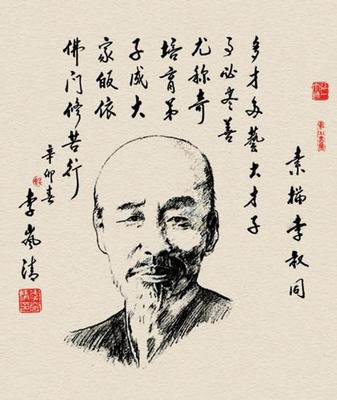 素描李叔同
多才多艺大才子
事必尽善
尤称奇
培育弟
子成大
家皈依
佛门修苦行
辛卯春
李岚清